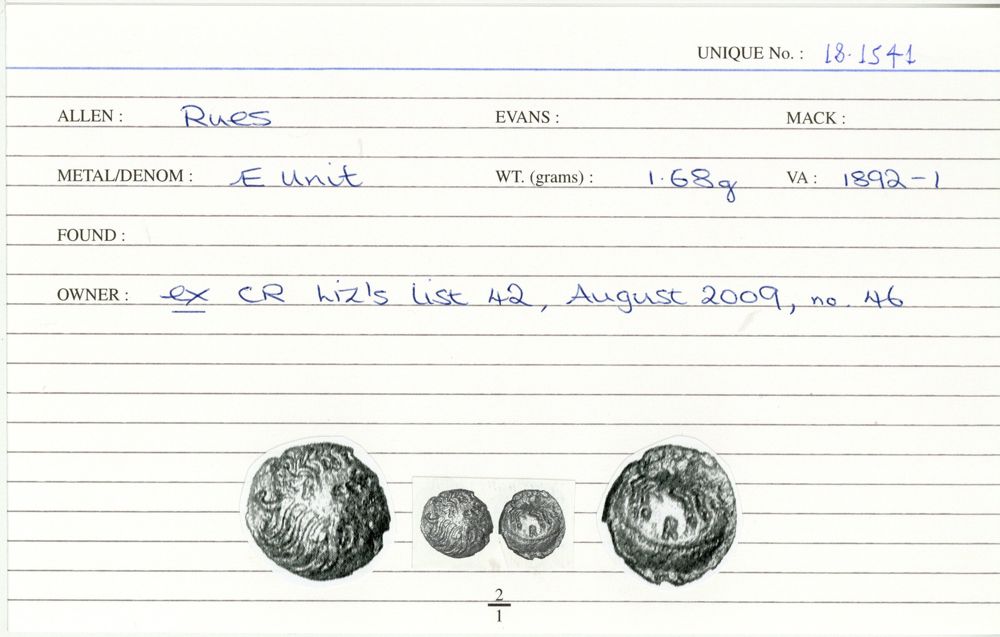 UNIQUE No. : 18.1541
ALLEN : Rues EVANS : MACK :
METAL/DENOM : Æ Unit WT. (grams) : 1.68g VA : 1892-1
FOUND :
OWNER : ex CR Liz's List 42, August 2009, no. 46
2
1